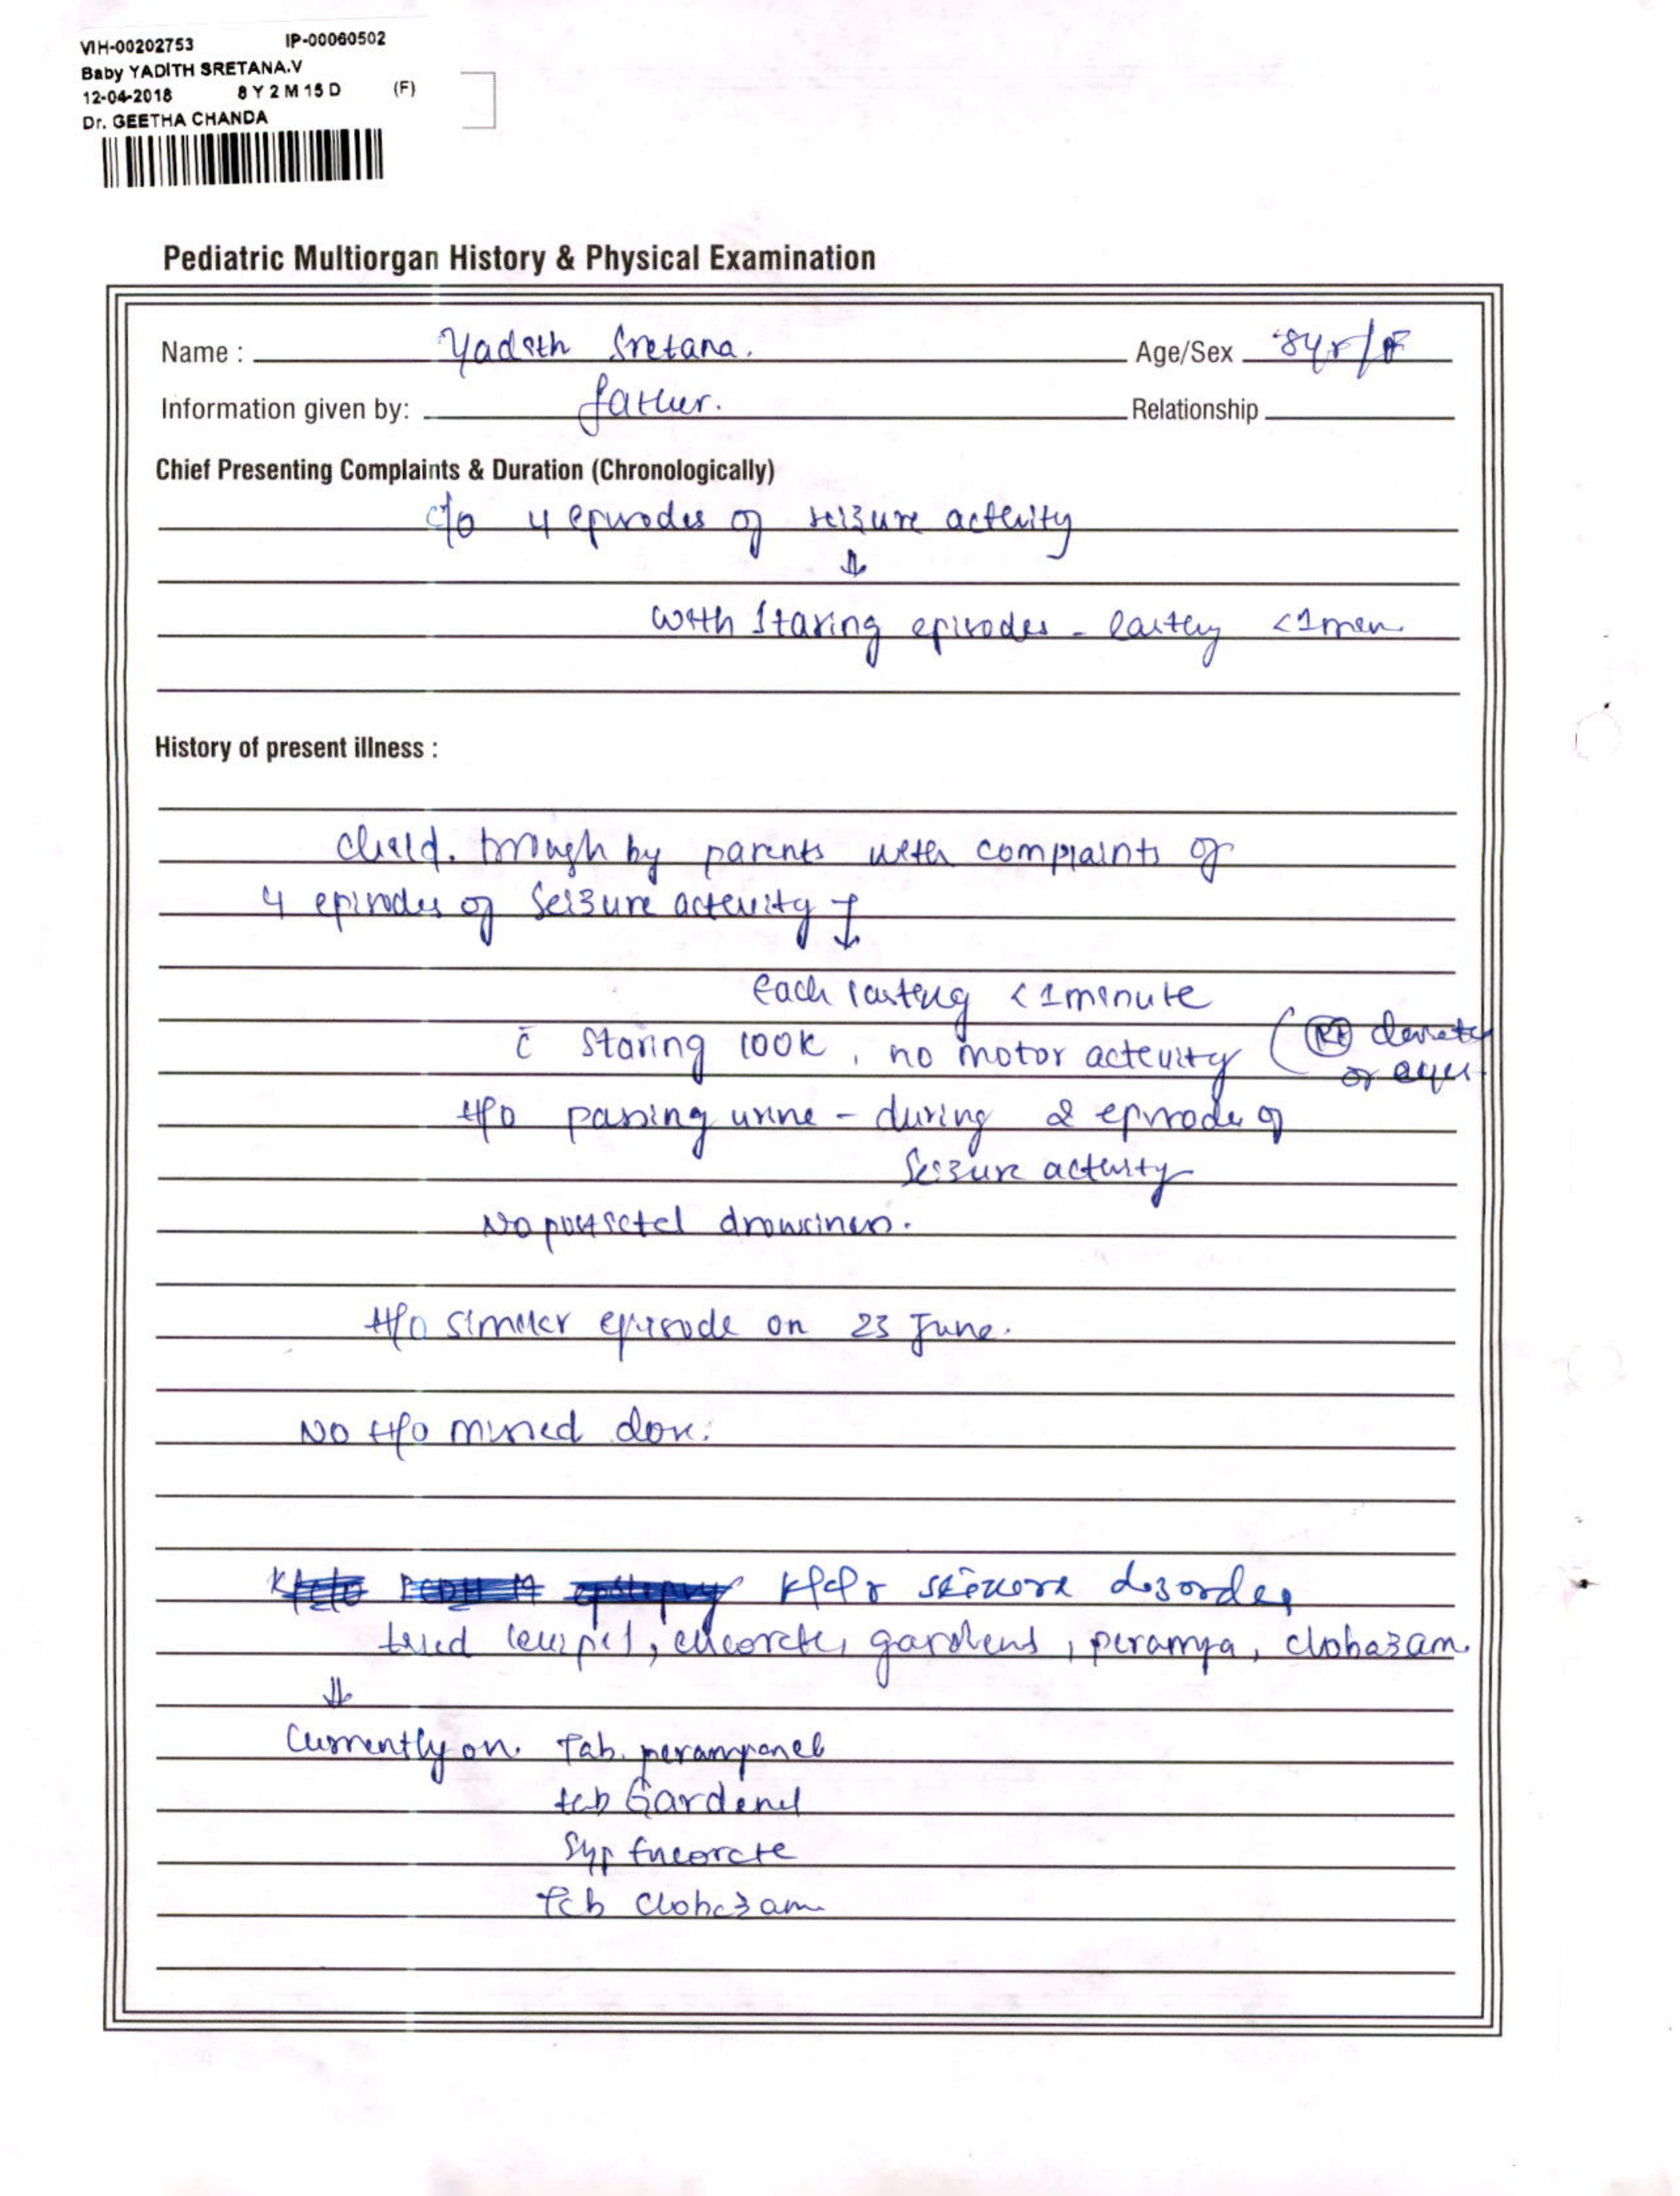 VIH-00202753 IP-00060502
Baby YADITH SRETANA.V
12-04-2018 8 Y 2 M 15 D (F)
Dr. GEETHA CHANDA
Pediatric Multiorgan History & Physical Examination
Name : Yadith Sretana. Age/Sex 8yr/F
Information given by: father. Relationship
Chief Presenting Complaints & Duration (Chronologically)
c/o 4 episodes of seizure activity
↓
with staring episodes - lasting <1min
History of present illness :
child. brough by parents with complaints of
4 episodes of seizure activity ↓
each lasting <1minute
c̄ staring look, no motor activity (Rt
of eyes
H/o passing urine - during 2 episode of
seizure activity
No postictal drowsiness.
H/o similar episode on 23 June.
No H/o missed dose.
K/c/o seizure disorder
tried levipil, encorate, gardenal, perampa, clobazam.
↓
Currently on. Tab. perampanel
tab Gardenal
Syp Encorate
Tab clobazam